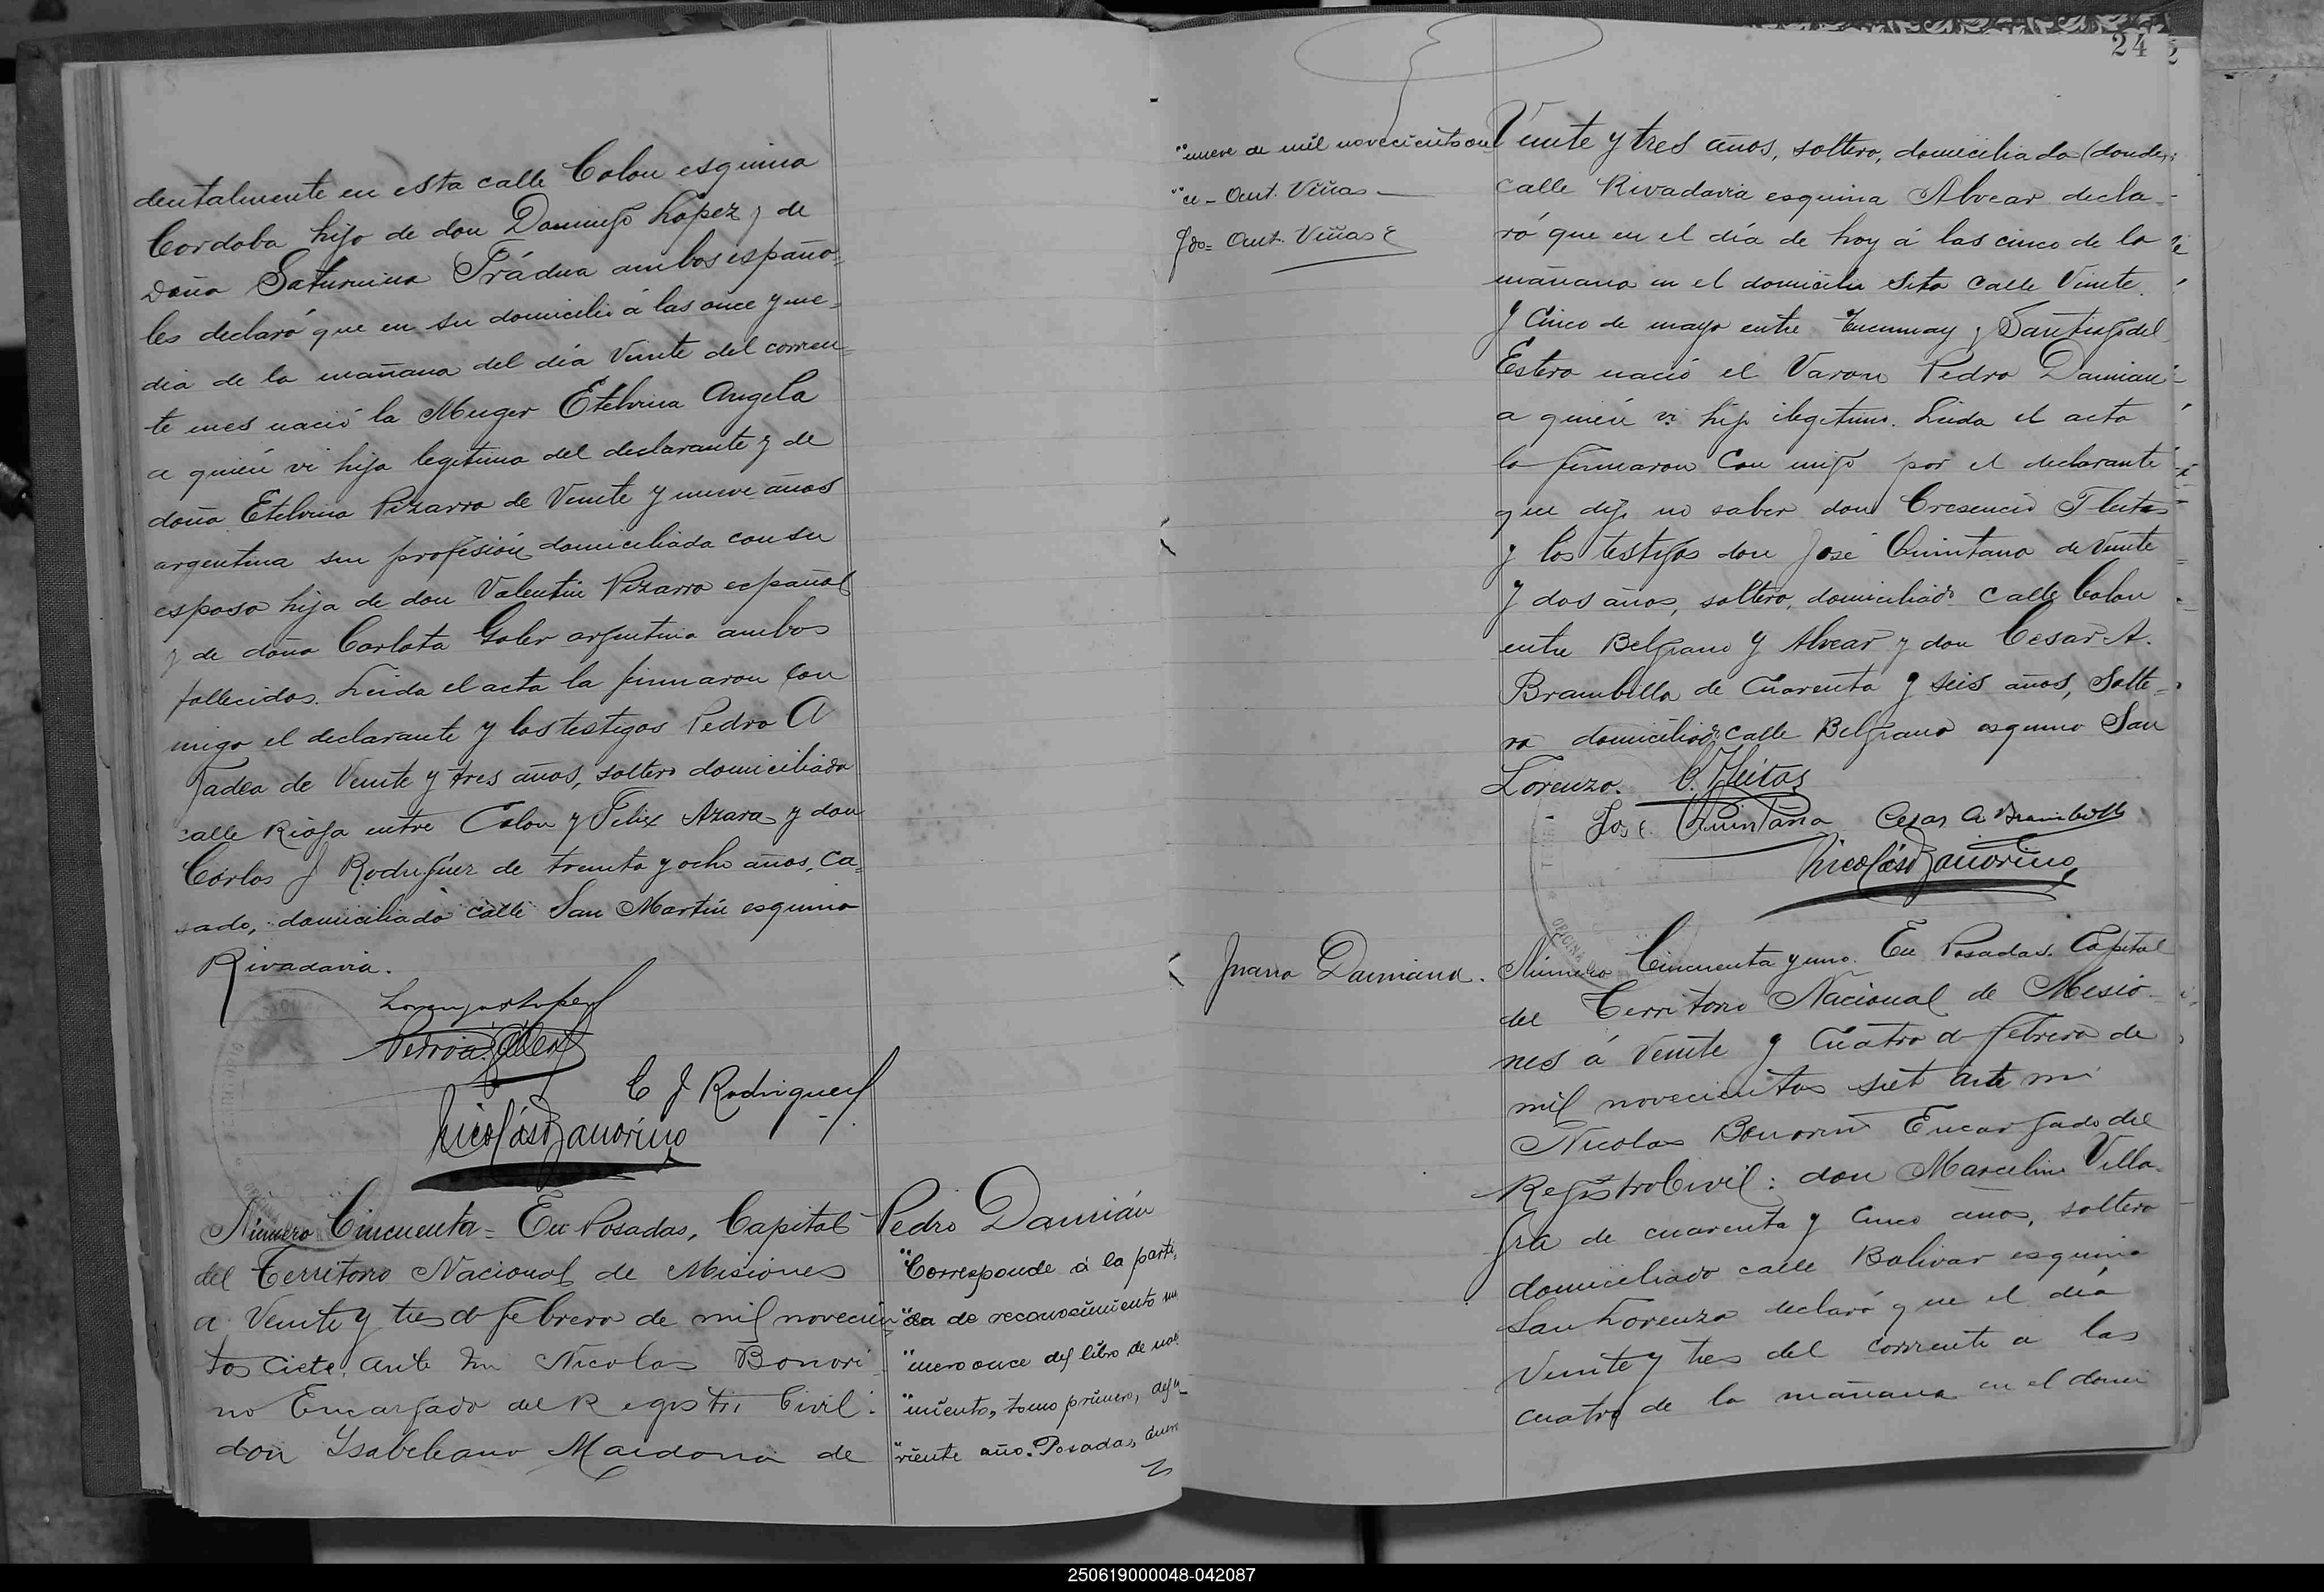 dentalmente en esta calle Colon esquina
Cordoba hijo de don Domingo Lopez y de
doña Saturnina Trádua ambos españo=
les declaró que en su domicilio á las once y me=
dia de la mañana del día Veinte del corrien=
te mes nació la Muger Etelvina Angela
a quién vi hija legitima del declarante y de
doña Etelvina Pizarro de Veinte y nueve años
argentina sin profesión domiciliada con su
esposo hija de don Valentin Pizarro español
y de doña Carlota Goler argentina ambos
fallecidos. Leida el acta la firmaron con
migo el declarante y los testigos Pedro A
Jadea de Veinte y tres años, soltero domiciliado
calle Rioja entre Colon y Felix Azara y don
Carlos J Rodriguez de treinta y ocho años, Ca=
sado, domiciliado calle San Martin esquina
Rivadavia.
C J Rodriguez
Nicolás Bonorino
Número Cincuenta = En Posadas, Capital
del Territorio Nacional de Misiones
a Veinte y tres de febrero de mil novecien
tos ciete, ante mi Nicolas Bonori
no Encargado del Registro Civil:
don Ysabeleano Maidana de
Pedro Damián
"Corresponde á la parti
"da de reconocimiento nu
"mero once del libro de naci
"miento, tomo primero, del co
"rriente año. Posadas, Enero
24
"nueve de mil novecientos on
"ce - Ant. Viñas -
Fdo= Ant. Viñas
Veinte y tres años, soltero, domiciliado (donde)
calle Rivadavia esquina Alvear decla=
ró que en el día de hoy á las cinco de la
mañana en el domicilio sito calle Veinte
y Cinco de mayo entre Tucumay y Santiago del
Estero nació el Varon Pedro Damian
a quién vi hijo ilegitimo. Leida el acta
la firmaron Con migo por el declarante
que dijo no saber don Cresencio Fleitas
y los testigos don José Quintana de Veinte
y dos años, soltero, domiciliado calle Colon
entre Belgrano y Alvear y don Cesar A.
Brambilla de Cuarenta y seis años, Solte=
ro domiciliado calle Belgrano esquina San
Lorenzo. C. Fleitas
José Quintana Cesar A Brambilla
Nicolás Bonorino
Juana Damiana.
Número Cincuenta y uno. En Posadas. Capital
del Territorio Nacional de Misio
nes á Veinte y Cuatro de febrero de
mil novecientos siet ante mi
Nicolas Bonorino Encargado del
Registro Civil: don Marcelino Villa
gra de cuarenta y cinco años, soltero
domiciliado calle Bolivar esquina
San Lorenzo declaró que el día
Veinte y tres del corriente a las
cuatro de la mañana en el domi
250619000048-042087